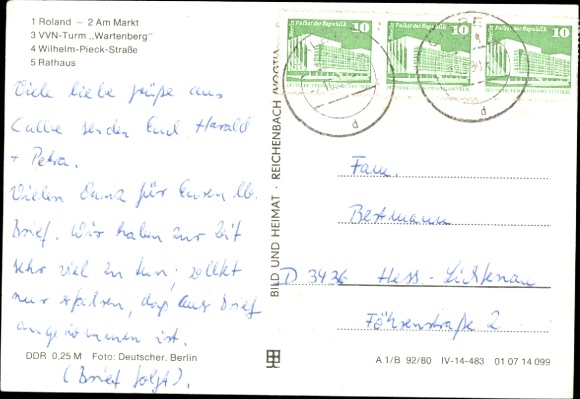 1 Roland – 2 Am Markt
3 VVN-Turm „Wartenberg"
4 Wilhelm-Pieck-Straße
5 Rathaus
Viele liebe Grüße aus
Calbe senden Euch Harald
+ Petra.
Vielen Dank für Euren lb.
Brief. Wir haben zur Zeit
sehr viel zu tun; solltet
nur erfahren, daß Euer Brief
angekommen ist.
(Brief folgt).
DDR 0,25 M Foto: Deutscher, Berlin
BILD UND HEIMAT · REICHENBACH
Palast der Republik 10
Berlin Palast der Republik 10
Berlin Palast der Republik 10
d
d
Fam.
Bertmann
D 3436 Hess.-Lichtenau
Föhrenstraße 2
A 1/B 92/80 IV-14-483 01 07 14 099